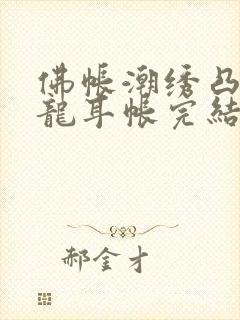 佛帐潮绣凸
龍耳帐完結
郝金才